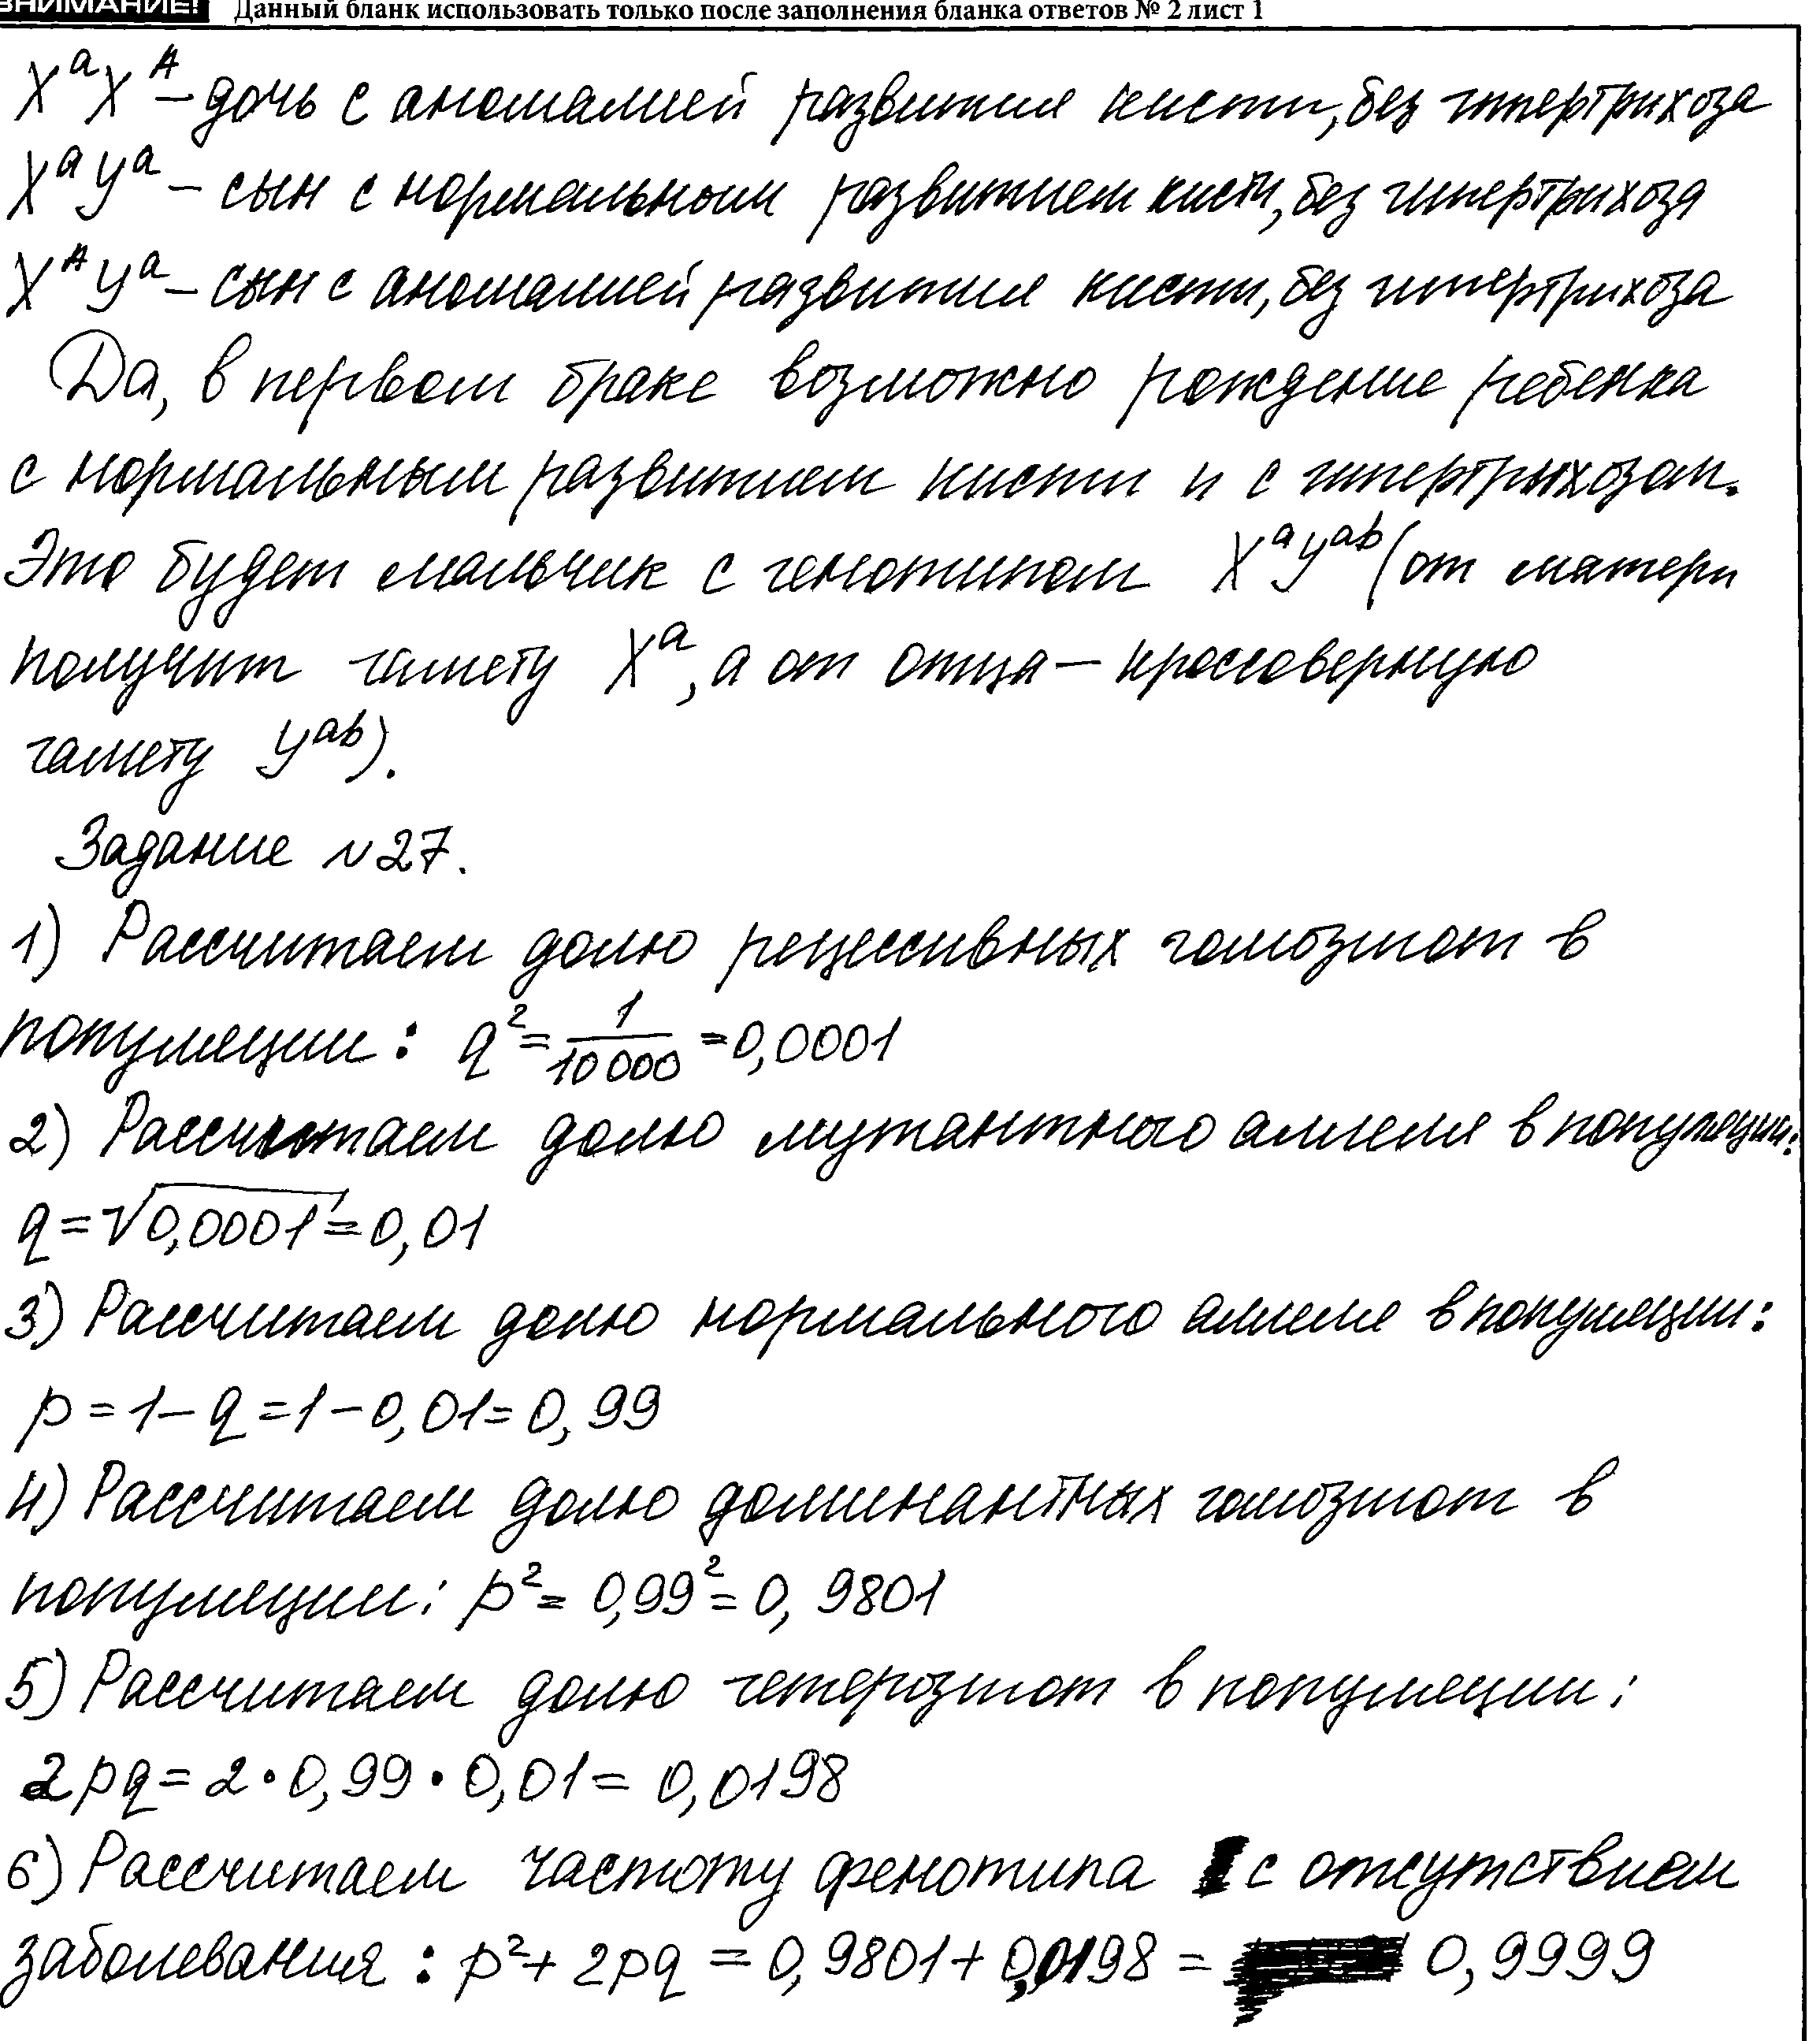 ВНИМАНИЕ! Данный бланк использовать только после заполнения бланка ответов № 2 лист 1
XᵃXᴬ – дочь с аномалией развития кисти, без гипертрихоза
XᵃYᵃ – сын с нормальным развитием кисти, без гипертрихоза
XᴬYᵃ – сын с аномалией развития кисти, без гипертрихоза
Да, в первом браке возможно рождение ребенка
с нормальным развитием кисти и с гипертрихозом.
Это будет мальчик с генотипом XᵃYᵃᵇ (от матери
получит гамету Xᵃ, а от отца – кроссоверную
гамету Yᵃᵇ).
Задание №27.
1) Рассчитаем долю рецессивных гомозигот в
популяции: q² = 1/10000 = 0,0001
2) Рассчитаем долю мутантного аллеля в популяции:
q = √0,0001 = 0,01
3) Рассчитаем долю нормального аллеля в популяции:
p = 1 – q = 1 – 0,01 = 0,99
4) Рассчитаем долю доминантных гомозигот в
популяции: p² = 0,99² = 0,9801
5) Рассчитаем долю гетерозигот в популяции:
2pq = 2 · 0,99 · 0,01 = 0,0198
6) Рассчитаем частоту фенотипа с отсутствием
заболевания: p² + 2pq = 0,9801 + 0,0198 = 0,9999